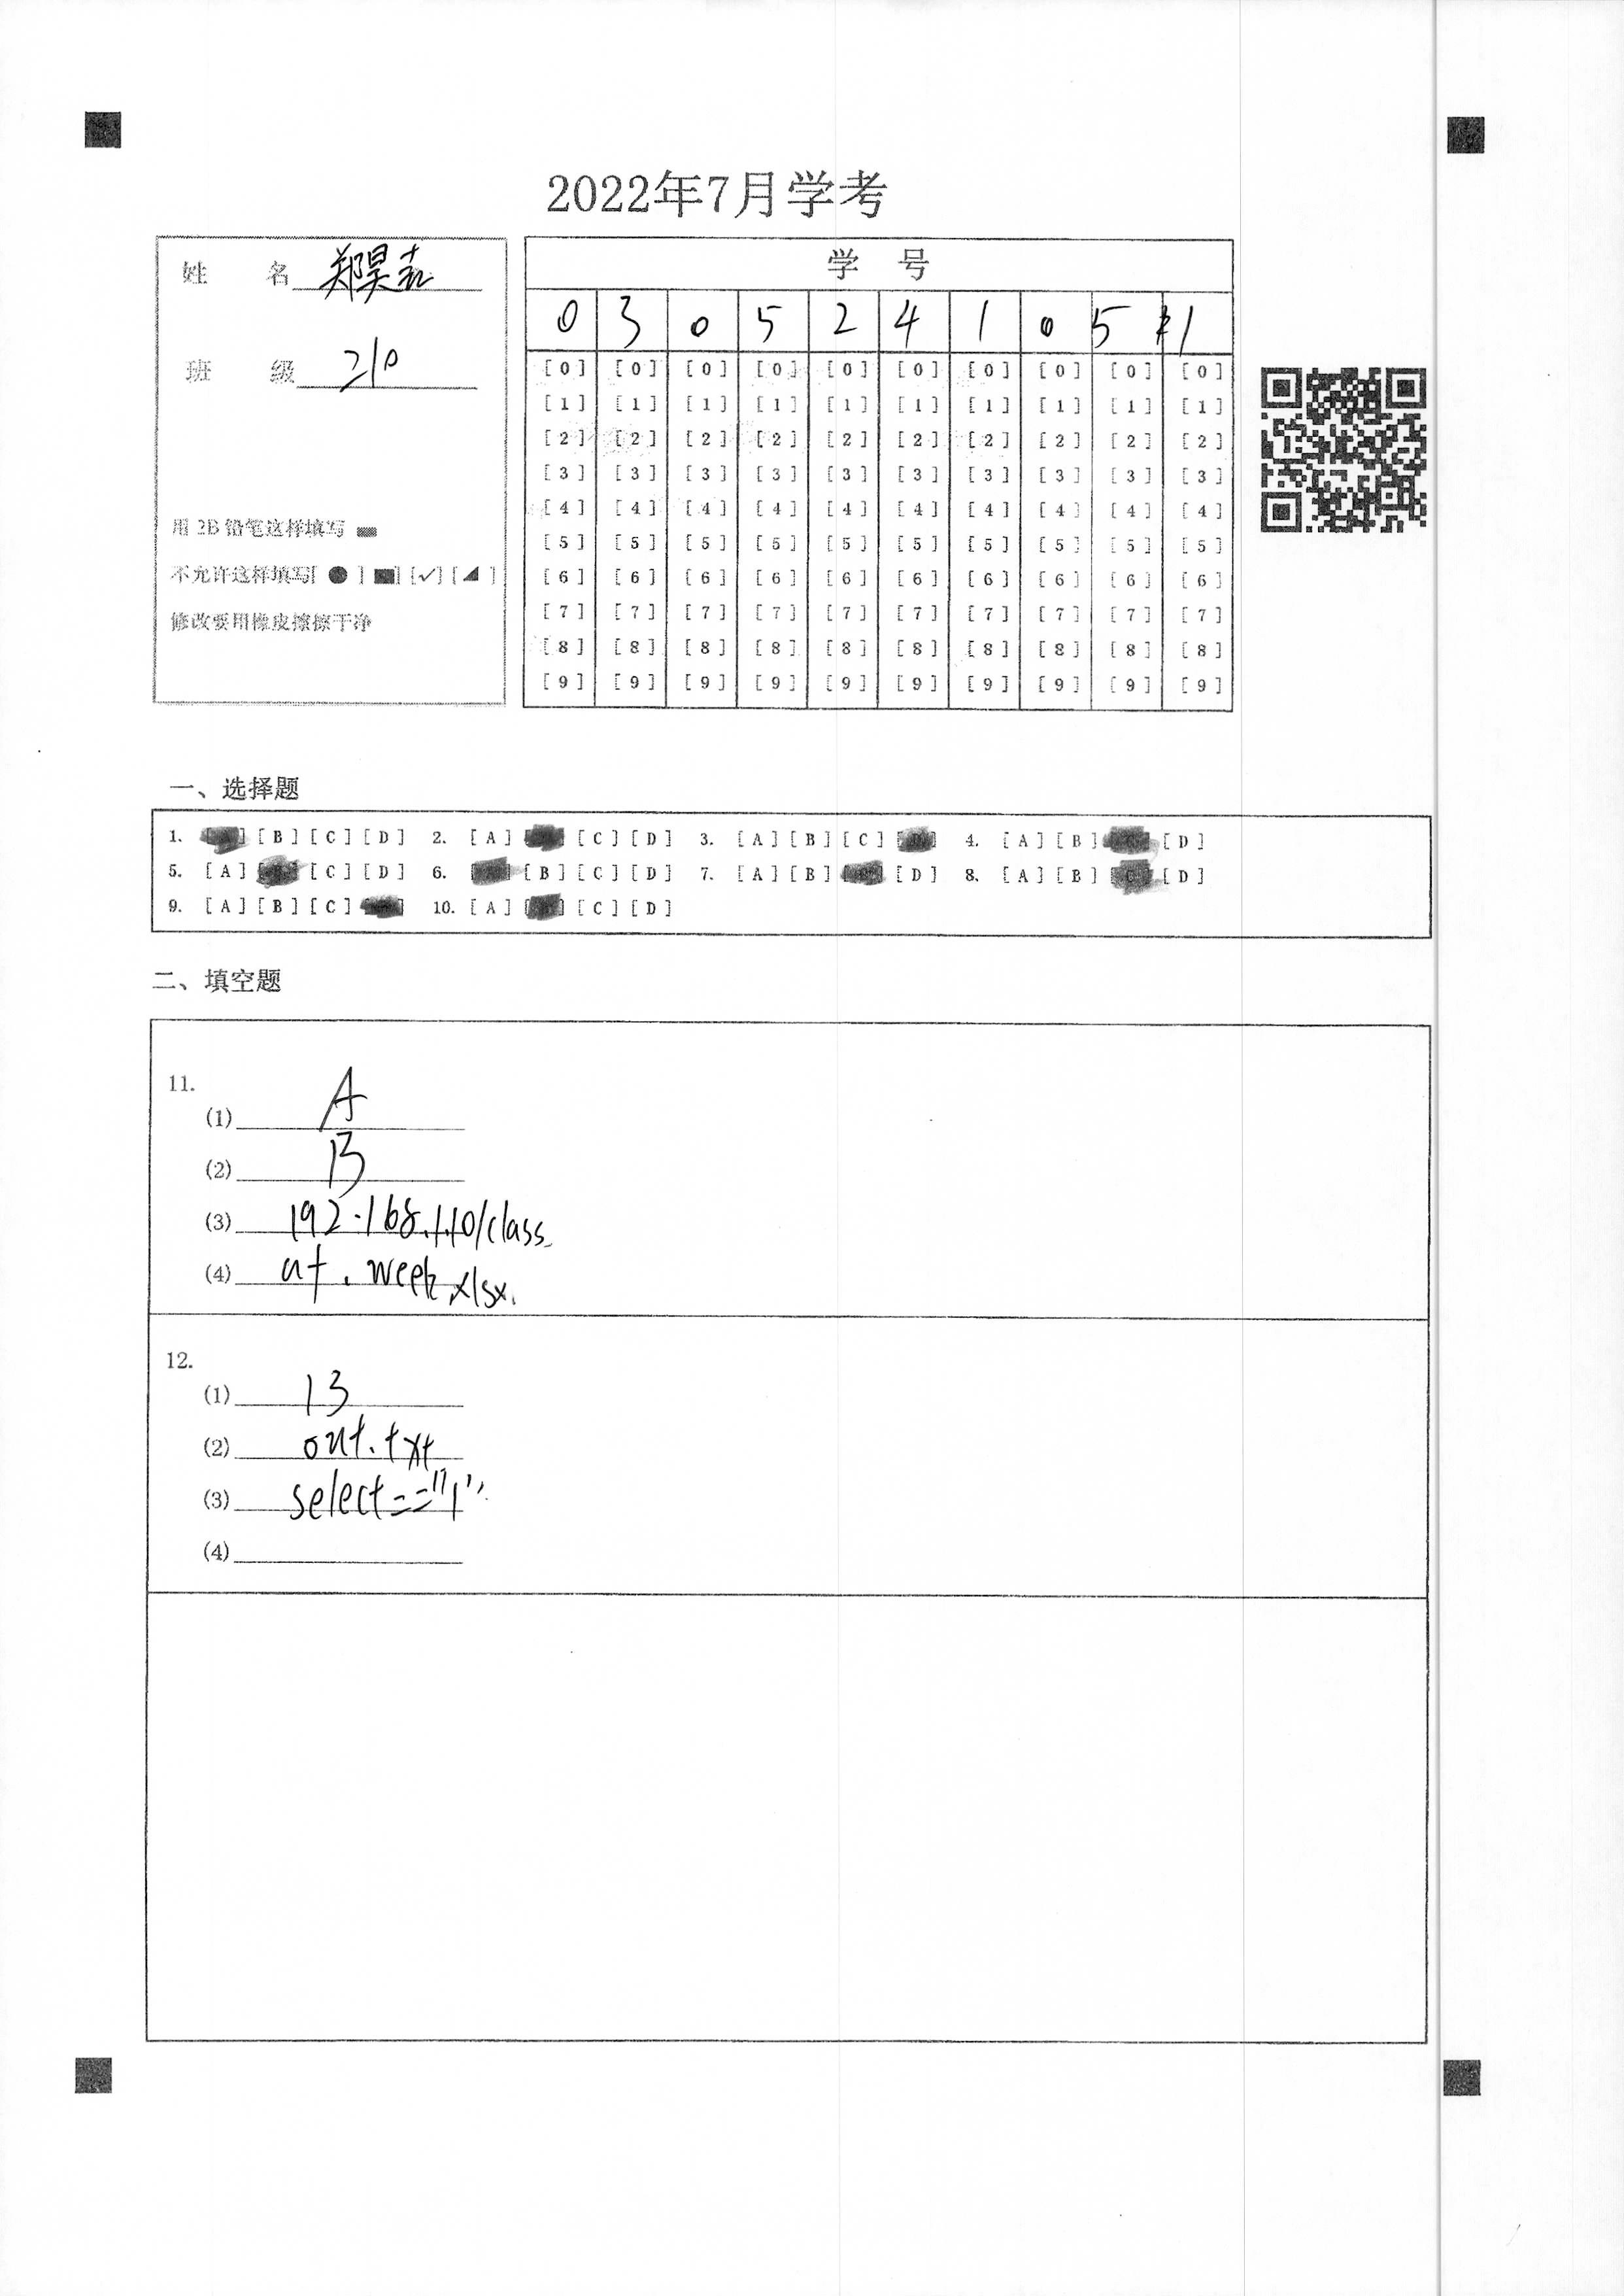 2022年7月学考
姓 名 郑昊嘉
班 级 210
用 2B 铅笔这样填写
不允许这样填写[ ● ] [■] [✓] [◢ ]
修改要用橡皮擦擦干净
学 号
0 3 0 5 2 4 1 0 5 1
[0] [0] [0] [0] [0] [0] [0] [0] [0] [0]
[1] [1] [1] [1] [1] [1] [1] [1] [1] [1]
[2] [2] [2] [2] [2] [2] [2] [2] [2] [2]
[3] [3] [3] [3] [3] [3] [3] [3] [3] [3]
[4] [4] [4] [4] [4] [4] [4] [4] [4] [4]
[5] [5] [5] [5] [5] [5] [5] [5] [5] [5]
[6] [6] [6] [6] [6] [6] [6] [6] [6] [6]
[7] [7] [7] [7] [7] [7] [7] [7] [7] [7]
[8] [8] [8] [8] [8] [8] [8] [8] [8] [8]
[9] [9] [9] [9] [9] [9] [9] [9] [9] [9]
一、选择题
1. [A] [B] [C] [D] 2. [A] [B] [C] [D] 3. [A] [B] [C] [D] 4. [A] [B] [C] [D]
5. [A] [B] [C] [D] 6. [A] [B] [C] [D] 7. [A] [B] [C] [D] 8. [A] [B] [C] [D]
9. [A] [B] [C] [D] 10. [A] [B] [C] [D]
二、填空题
11.
(1) A
(2) B
(3) 192.168.1.10/class
(4) at.week.xlsx.
12.
(1) 13
(2) out.txt
(3) select=="1"
(4)